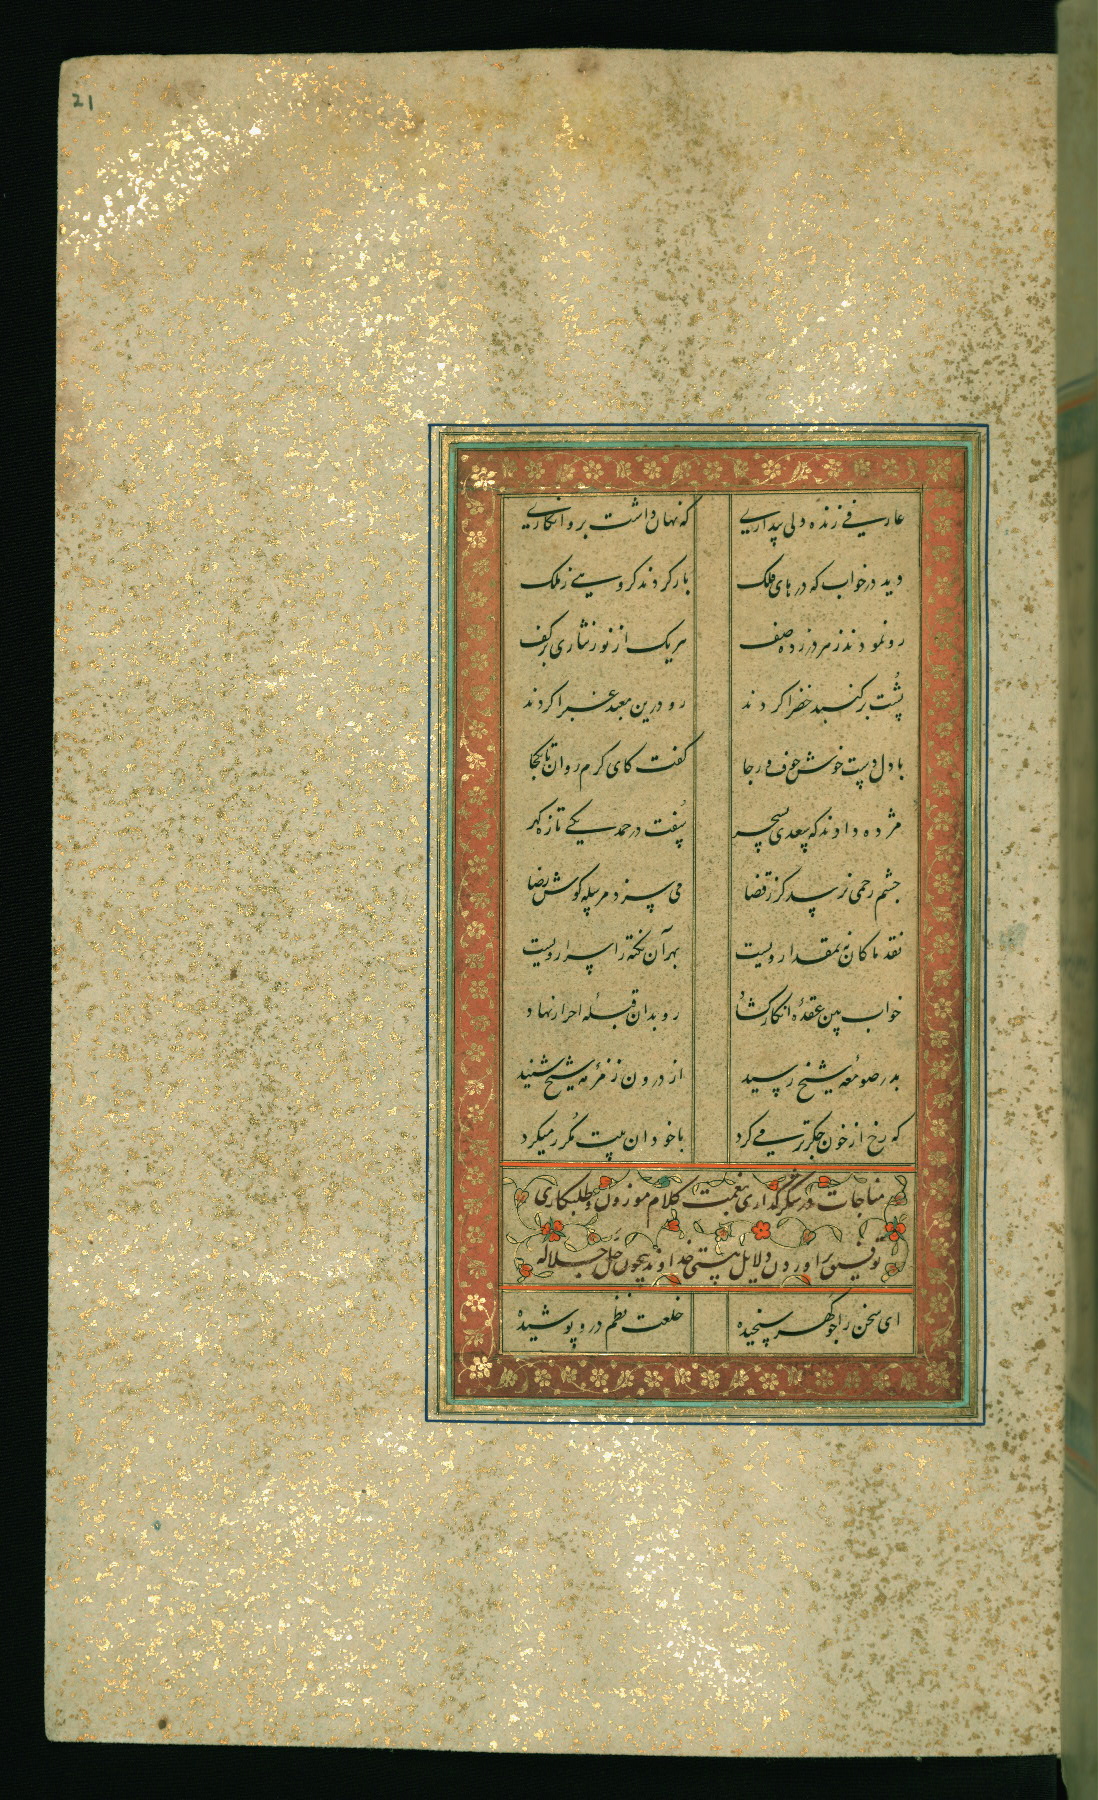 21
عارفے زنده دلی بیداریے که نهان داشت بر و انکاریے
دید در خواب که درهای فلک بازکردند کروهے ز ملک
رو نمودند ز هر در زده صف هر یک از نور نثاری بر کف
پشت بر کنبد خضرا کردند رو درین معبد غبرا کردند
با دل دست خوش خوف و رجا کفت کای کرم روان تا بکجا
مژده دادند که سعدی بسحر سفت در حمد یکے تازه کهر
چشم زخمی نرسد کر ز قضا می سزد مرسله کوش رضا
نقد ما کان نه بمقدار ویست بهر آن نکته ز اسرار ویست
خواب بین عقدۀ انکار کشاد رو بدان قبلۀ احرار نهاد
بدر صومعه شیخ رسید از درون زمزمۀ شیخ شنید
که رخ از خون جکر تر می کرد با خود آن بیت مکرر میکرد
مناجات در شکر کذاری نعمت کلام موزون و طلبکاری
توفیق بر آوردن دلایل هستی خداوند بیچون جل جلاله
ای سخن را چو کهر سنجیده خلعت نظم درو پوشیده